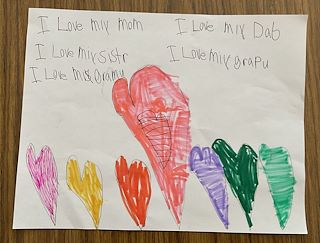 I Love mix mom
I Love mix Dab
I Love mix Sistr
I Love mix grapu
I Love mix gramy